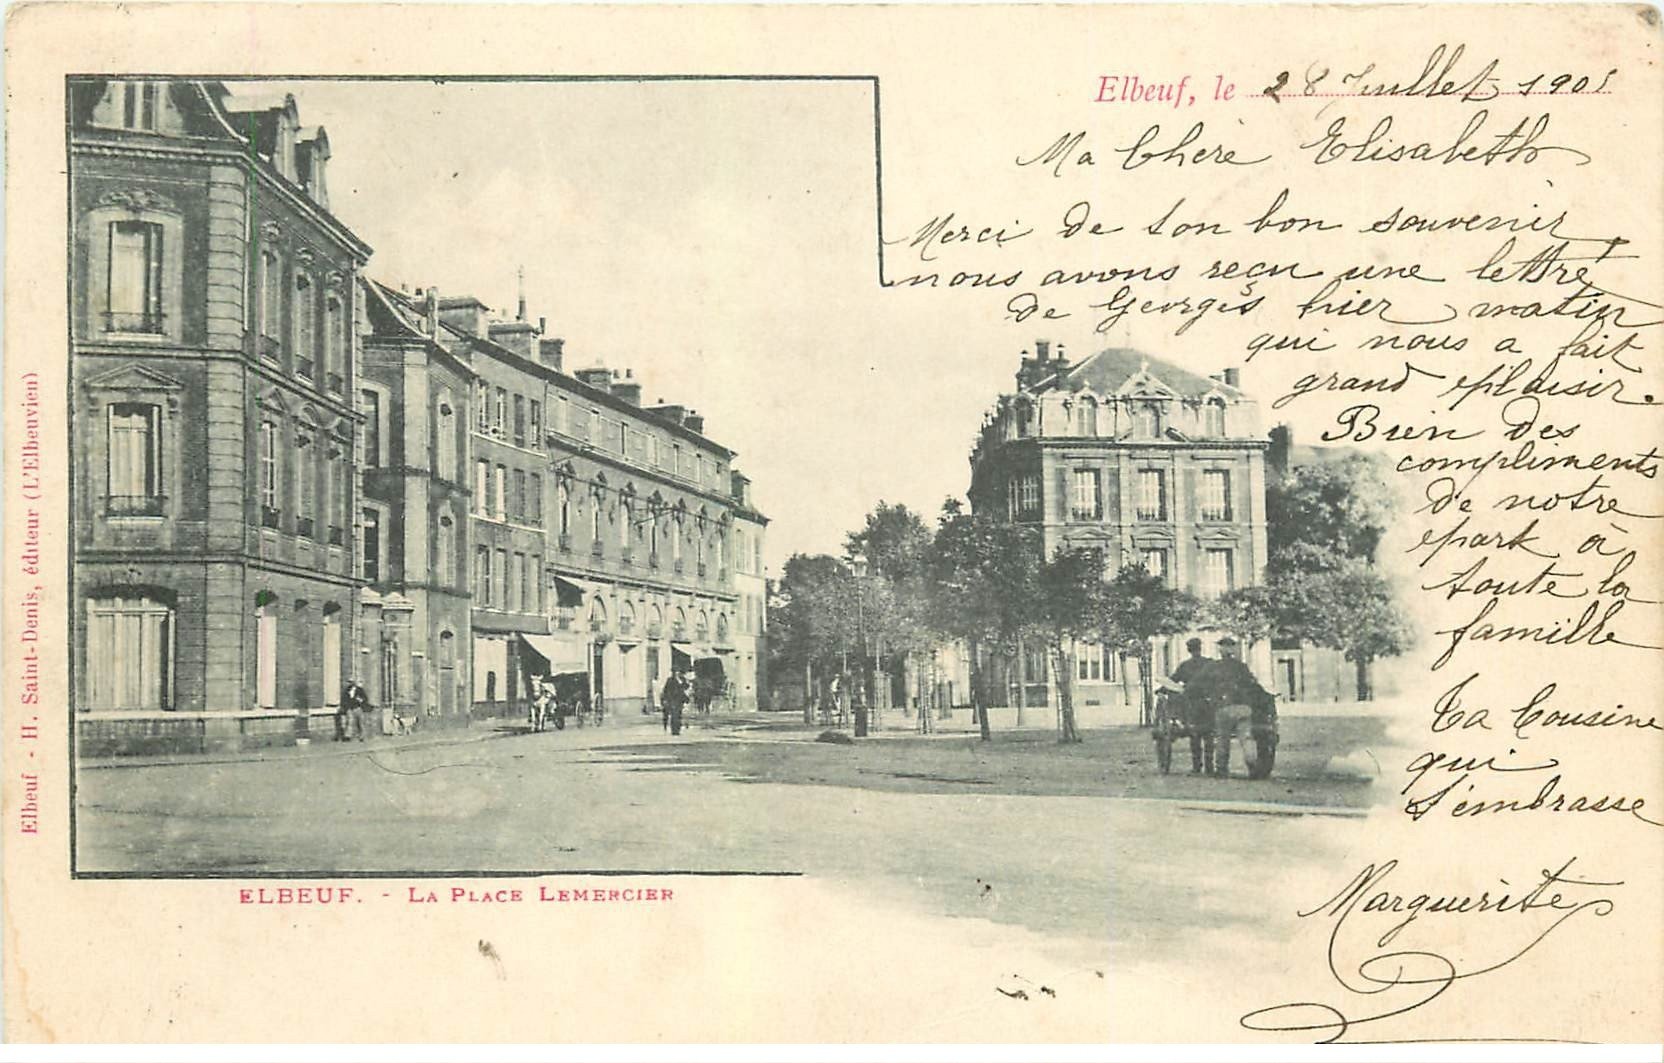 Elbeuf, le 28 Juillet 1901
Ma Chère Elisabeth
Merci de ton bon souvenir,
nous avons reçu une lettre
de Georges hier matin
qui nous a fait
grand plaisir.
Bien des
compliments
de notre
part à
toute la
famille
Ta Cousine
qui
t'embrasse
Marguerite
ELBEUF. - LA PLACE LEMERCIER
Elbeuf - H. Saint-Denis, éditeur (L'Elbeuvien)